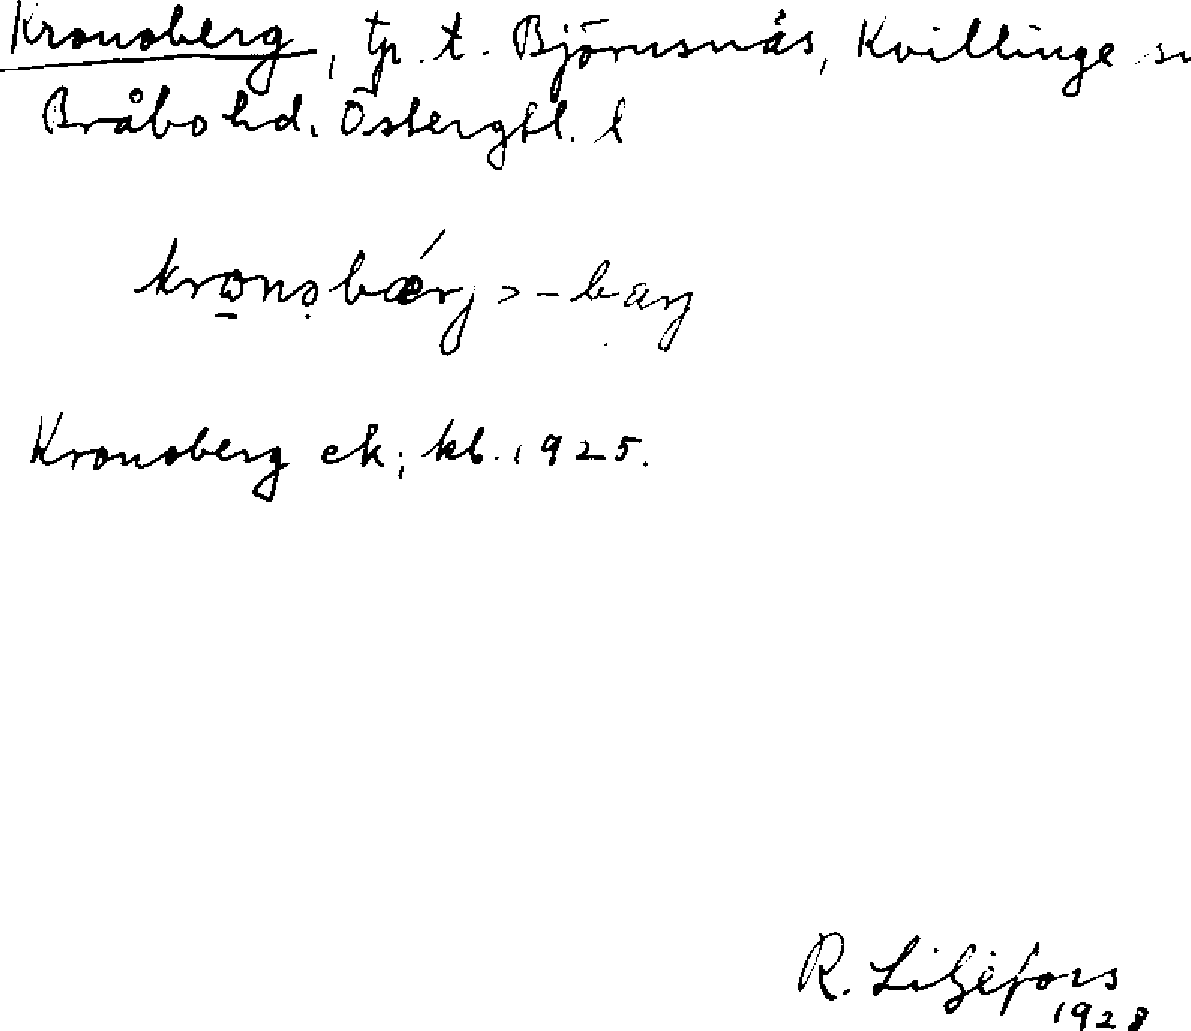 Kronoberg, tp. t. Björnsnäs, Kvillinge sn
Bråbo hd. Östergtl. l
kronobǽrj > -barj
Kronoberg ek; kb. 1925.
R. Liljefors
1928